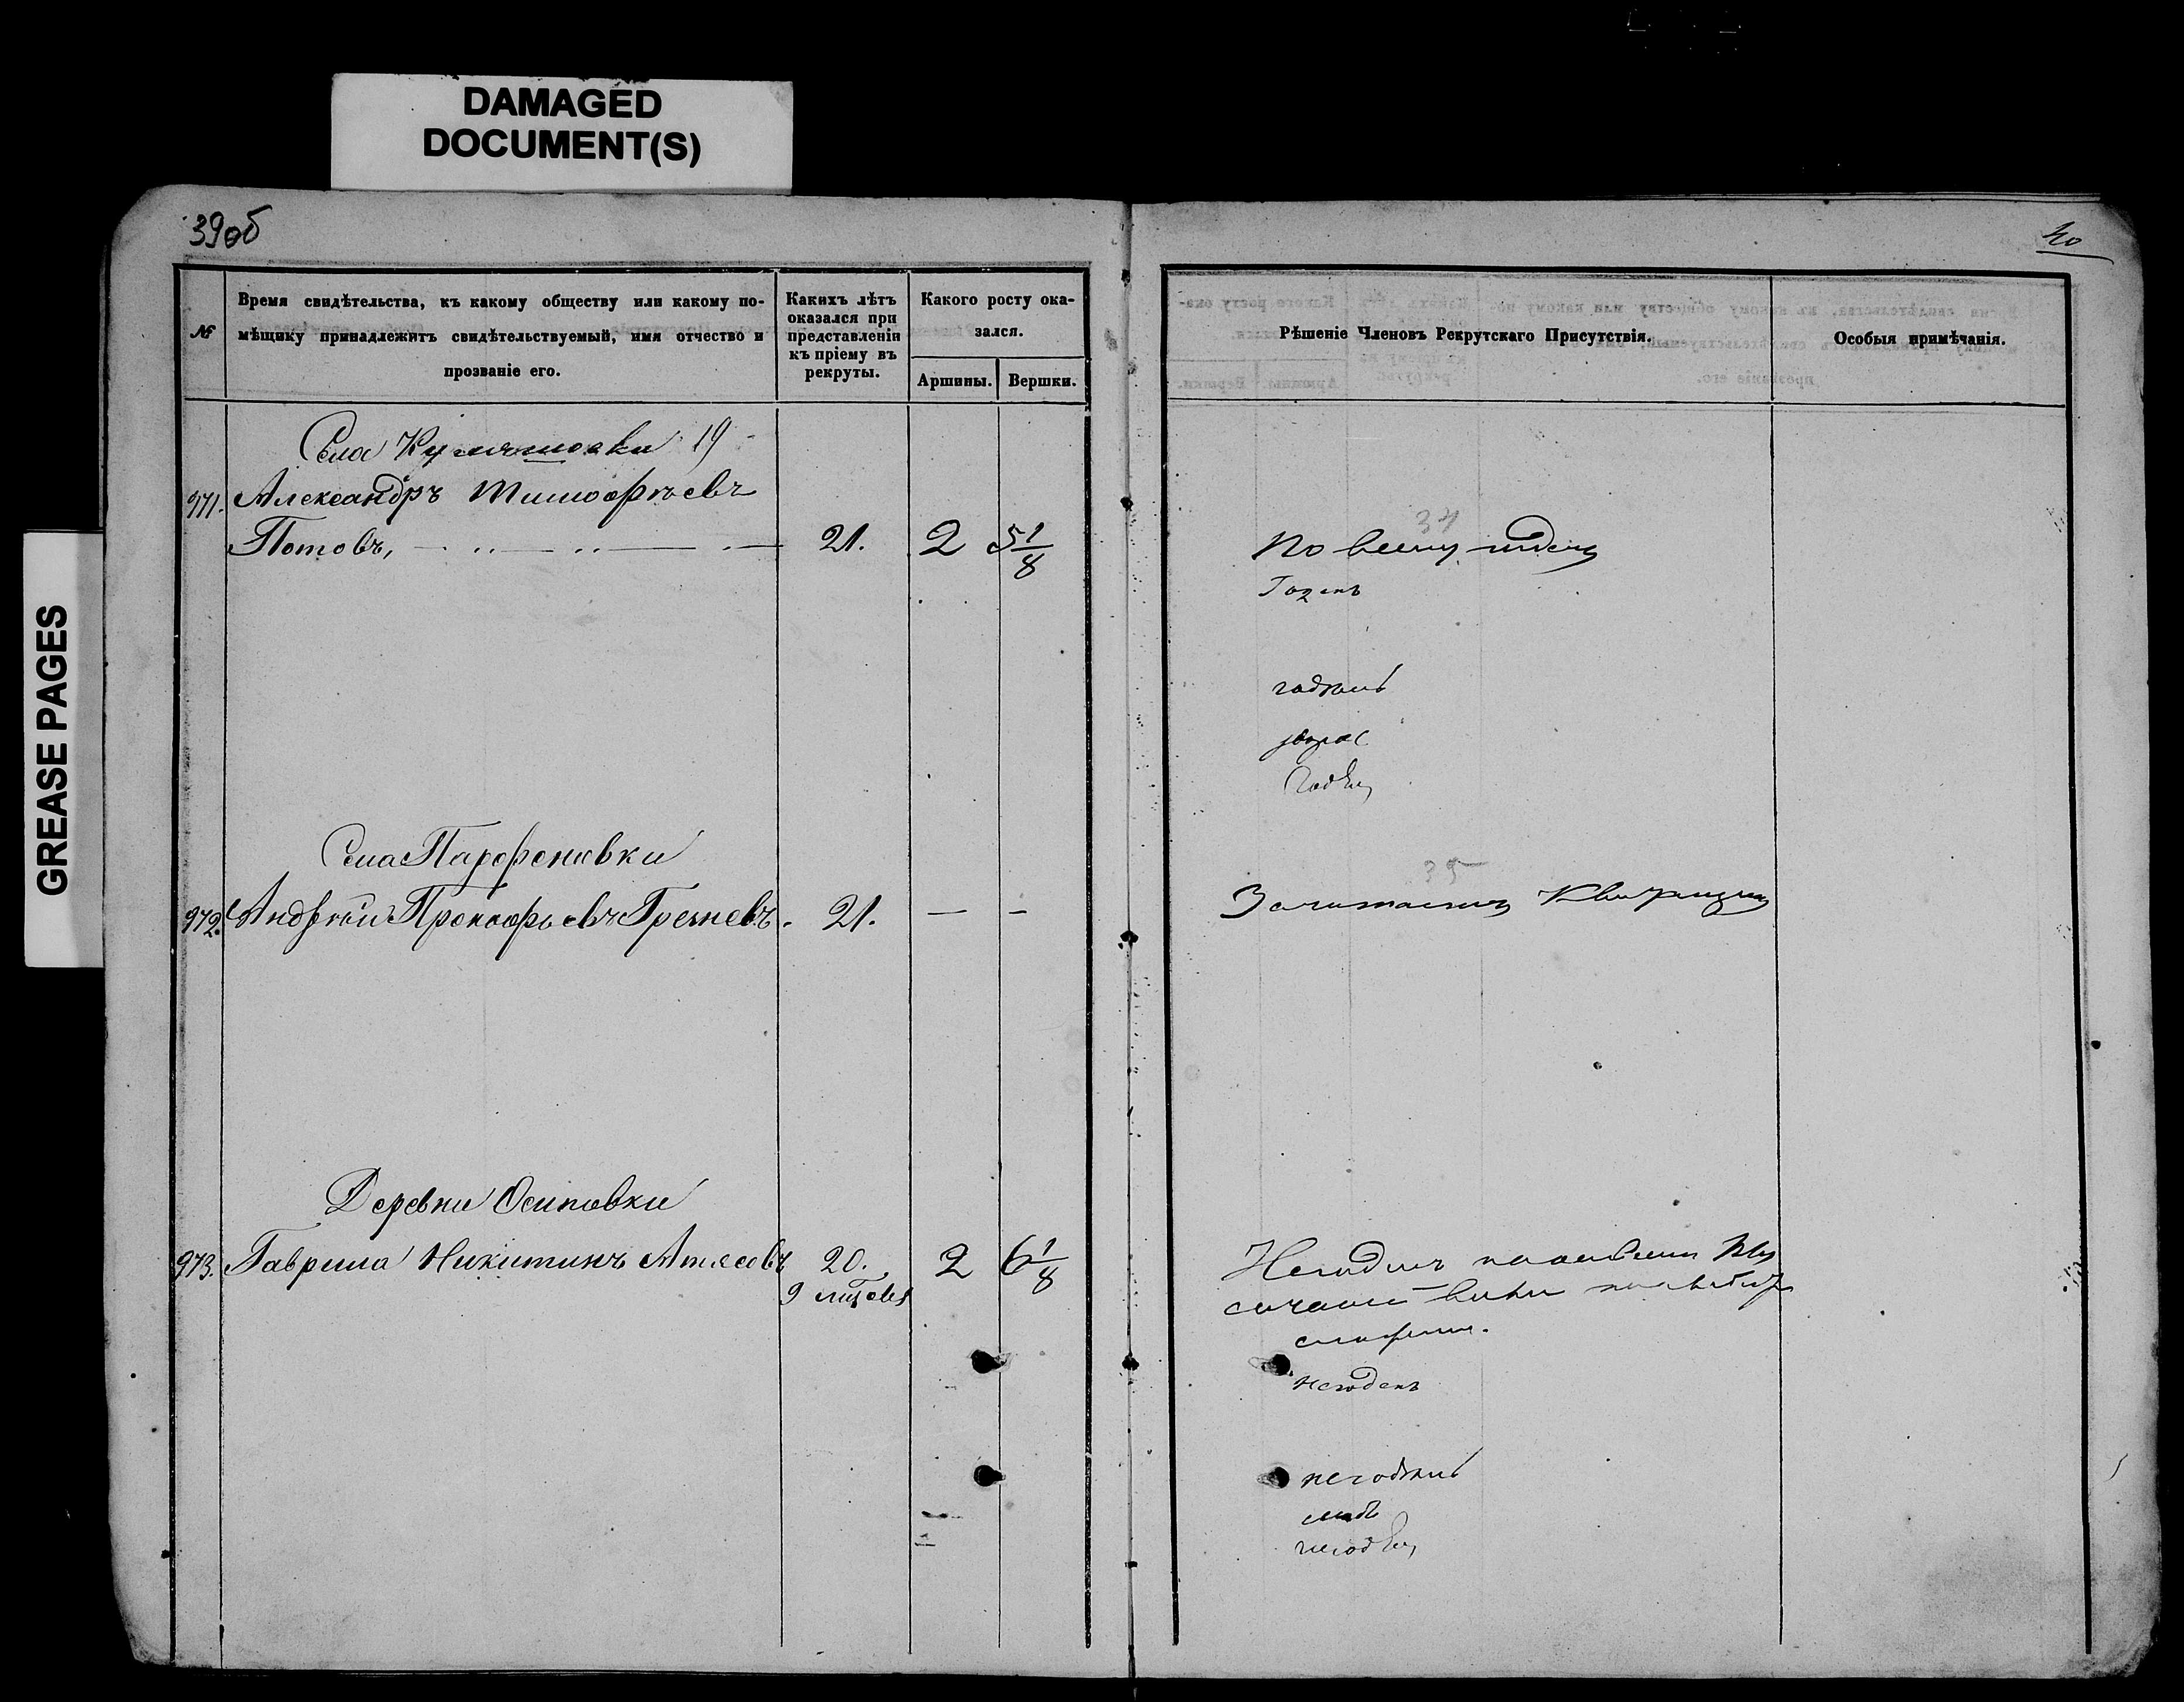 DAMAGED
DOCUMENT(S)
GREASE PAGES
39об
40
№
Время свидѣтельства, къ какому обществу или какому по-
мѣщику принадлежитъ свидѣтельствуемый, имя отчество и
прозваніе его.
Какихъ лѣтъ
оказался при
представленіи
къ пріему въ
рекруты.
Какого росту ока-
зался.
Аршины.
Вершки.
Рѣшеніе Членовъ Рекрутскаго Присутствія.
Особыя примѣчанія.
Села 19
971. Александръ Тимофѣевъ
Потовъ, 21. 2 5 1/8
34
По всему годенъ
Годенъ
годенъ
Годенъ
Села Парфеновки
35
972. Андрей Прокофьевъ 21. — —
Зачитаемъ Квитанцiя
Деревни Осиповки
973. Гаврила Никитинъ 20. 2 6 1/8
9 мѣсяцев
Негоденъ
негоденъ
негоденъ
слабъ
негоденъ